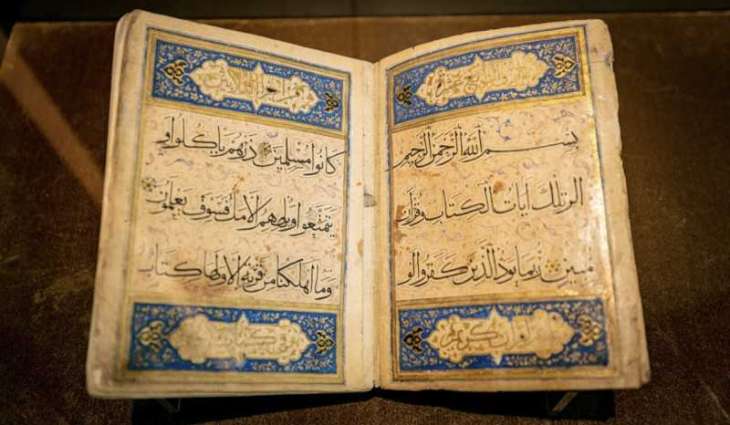 بسم الله الرحمن الرحيم
الر تلك ايات الكتاب وقران
مبين ربما يود الذين كفروا لو
كانوا مسلمين ذرهم ياكلوا و
يتمتعوا ويلههم الامل فسوف يعلمون
وما اهلكنا من قرية الا ولها كتاب